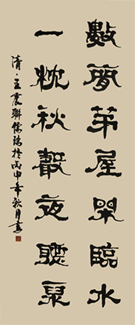 數間茅屋閑臨水
一枕秋聲夜聽泉
清·王震聯 於丙申年秋月書